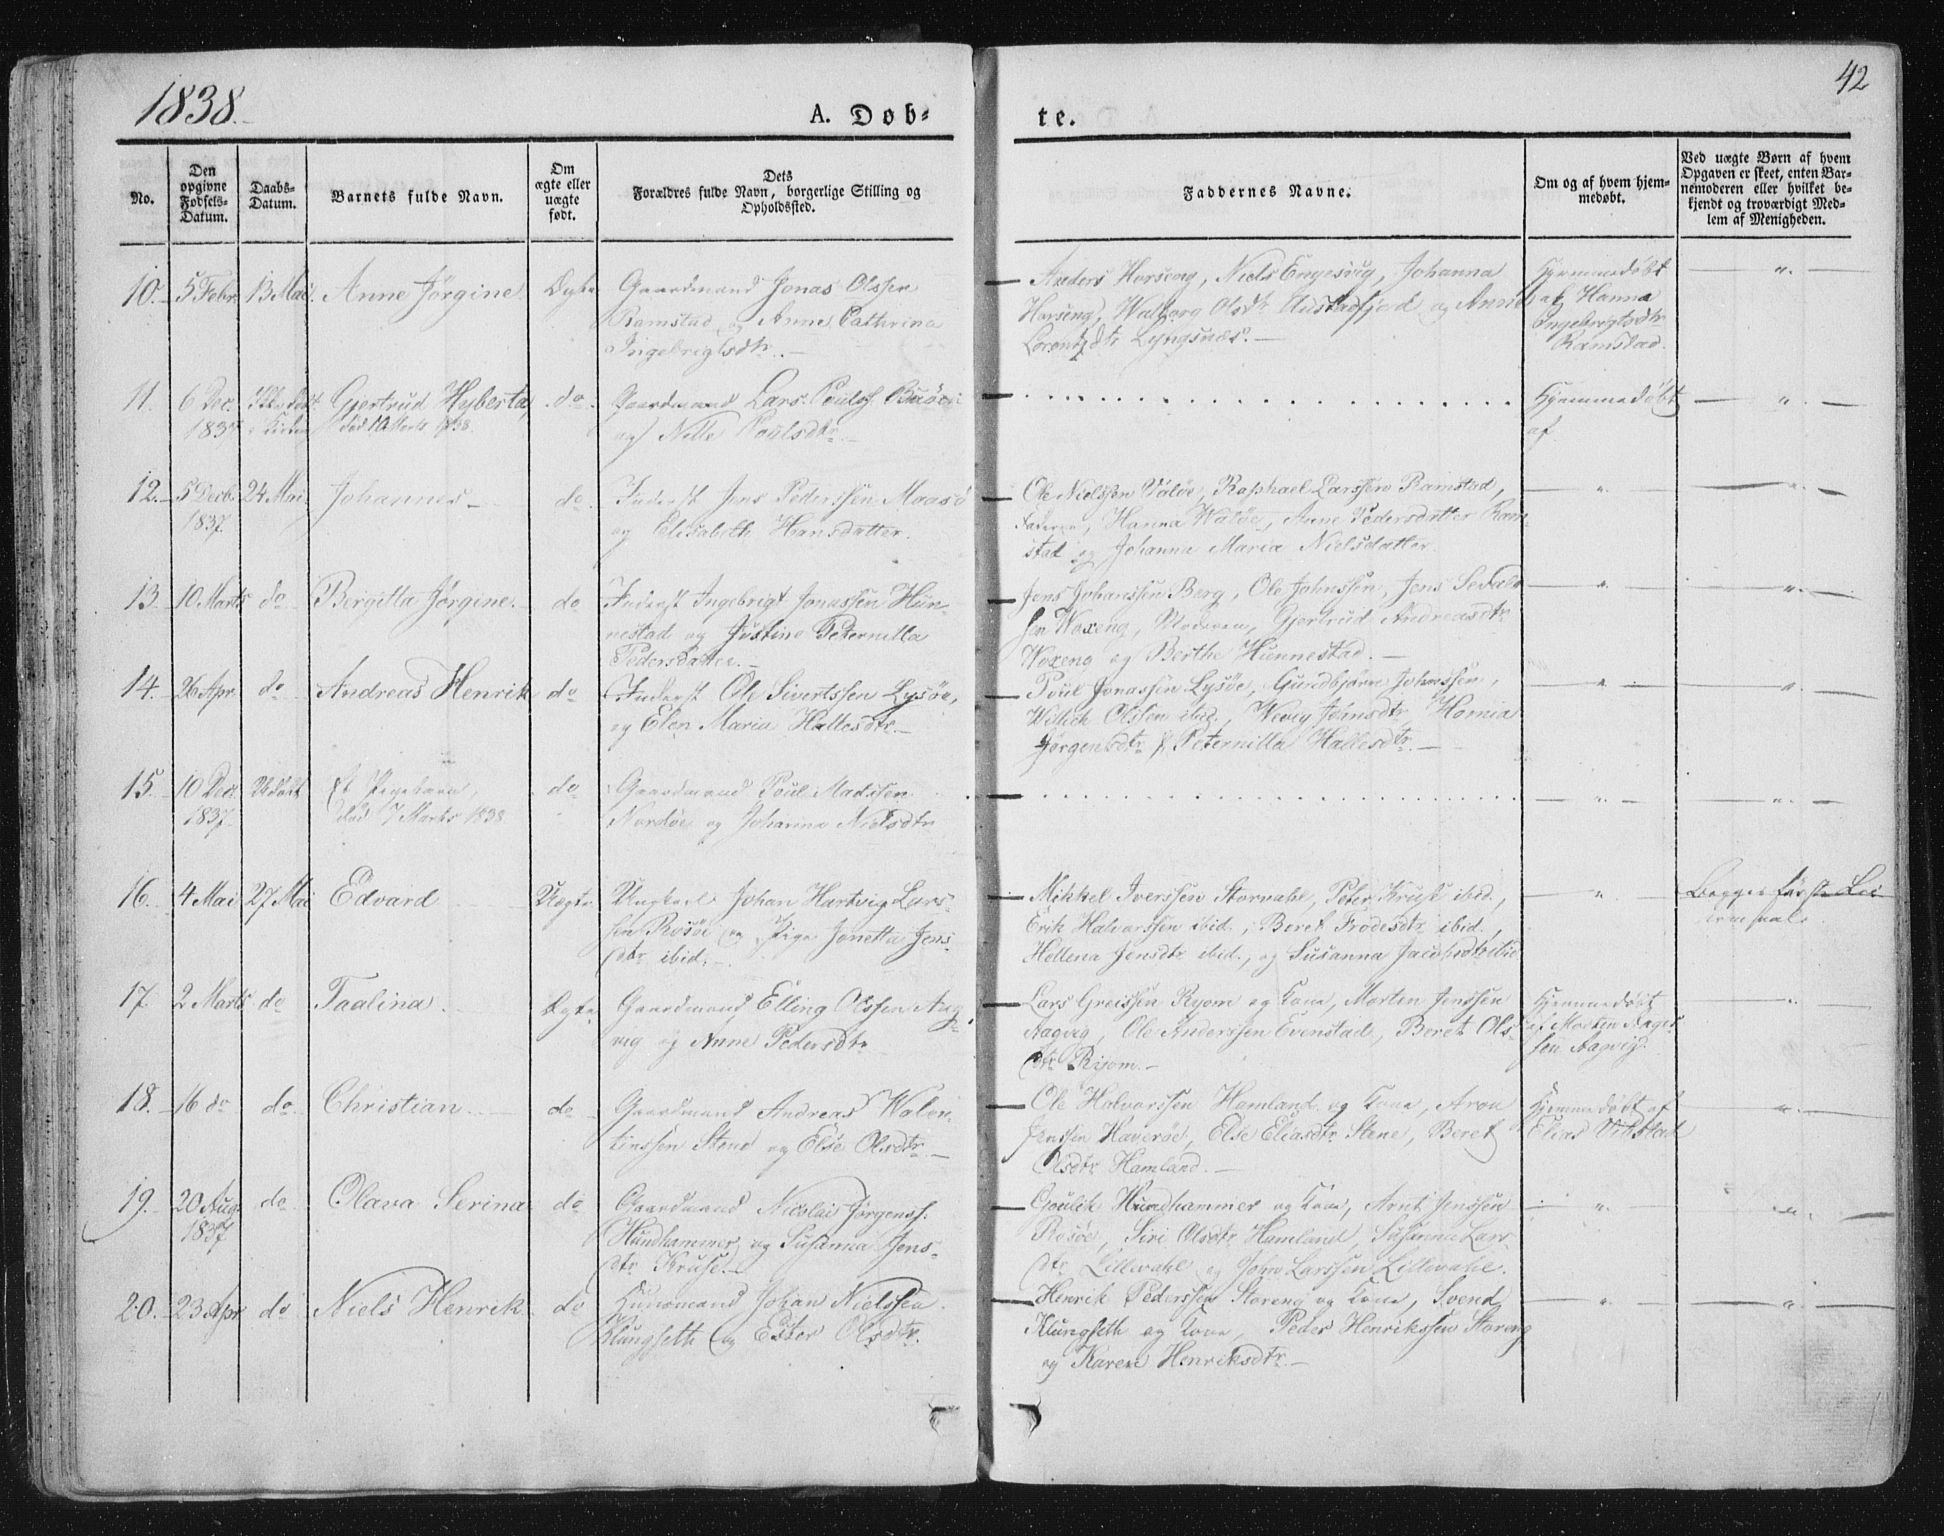 1838.
42
A. Døb-
te.
No.
Den opgivne Fødsels-Datum.
Daabs-Datum.
Barnets fulde Navn.
Om ægte eller uægte født.
Dets Forældres fulde Navn, borgerlige Stilling og Opholdssted.
Faddernes Navne.
Om og af hvem hjemmedøbt.
Ved uægte Børn af hvem
Opgaven er skeet, enten Bar-
nemoderen eller hvilket be-
kjendt og troværdigt Med-
lem af Menigheden.
10. 5 Febr. 13 Mai. Anne Jørgine Ægte Gaardmand Jonas Olssen
Ramstad og Anne Cathrina
Ingebrigtsdtr.
Anders Horseng, Niels Engesvig, Johanna
Horseng, Walborg Olsdtr og Anne
Lorentzdtr Lyngsnæs.
Hjemmedøbt
af Hanna
Ingebrigtsdtr
Ramstad.
11. 6 Dec. 1837 Gjertrud Hyberta, do Gaardmand Lars Poulss.
død 10 Marts 1838.
og Poulsdtr.
Hjemmedøbt
af
12. 5 Decb. 1837 24 Mai. Johannes do Inderst Jens Pederssen Maasø
og Elisabeth Hansdatter.
Ole Nielssen Valøe, Raphael Larssen Ramstad,
Faderen, Hanna Waløe, Anne Pedersdatter Ram-
stad og Johanna Maria Nielsdatter.
13. 10 Marts do Bergitta Jørgine. do Inderst Ingebrigt Jonassen Hun-
nestad og Justine Peternilla
Pedersdatter.
Jens Johanssen Berg, Ole Johnssen, Jens
sen Woxeng, Moderen, Gjertrud Andreasdtr
Woxeng og Berthe Hunnestad.
14. 26 Apr. do Andreas Henrik do Inderst Ole Sivertssen Lysøe,
og Elen Maria Hallesdtr.
Poul Jonassen Lysøe, Gundbjørn Johnssen,
Willich Olssen ibid., Johnsdtr, Hornia
Jørgensdtr & Peternilla Hallesdtr.
15. 10 Dec. 1837 Udøbt Et Pigebarn, do Gaardmand Poul Madssen
død 7 Marts 1838
Nordøe og Johanna Nielsdtr
16. 4 Mai 27 Mai Edvard Uægte Ungkarl Johan Hartvig Lars-
sen Rosøe og Pige Jonetta Jens-
dtr ibid.
Mikkel Iverssen Storvahl, Peter Kruse ibid.,
Erik Halvarssen ibid., Beret Frodesdtr ibid.,
Hellena Jensdtr ibid., og Susanna Jacobsdtr ibid
Begges første Lei-
ermaal.
17. 2 Marts do Taalina Ægte Gaardmand Elling Olssen Aag-
vig og Anne Pedersdtr
Lars Greissen Ryom og Kone, Morten Jenssen
Aagvig, Ole Anderssen Evenstad, Beret Ols-
dtr Ryom.
Hjemmedøbt
af Morten
sen Aagvig.
18. 16 do do Christian do Gaardmand Andreas Walen-
tinssen Stene og Else Olsdtr.
Ole Halvarssen Hamland og Kone, Aron
Jenssen Haverøe, Else Eliasdtr Stene, Beret
Olsdtr Hamland.
Hjemmedøbt af
Elias
19. 20 Aug. 1837 do Olava Serina do Gaardmand Nicolai Jørgenss.
Hundhammer og Susanna Jens-
dtr Kruse.
Hundhammer og Kone, Arnt Jenssen
Rosøe, Siri Olsdtr Hamland, Susanna Lars-
dtr Lillevahl og John Larssen Lillevahl.
20. 23 Apr do Niels Henrik do Huusmand Johan Nielssen
Klungseth og Ester Olsdtr.
Henrik Pederssen Storeng og Kone, Svend
Klungseth og Kone, Peder Henrikssen Storeng
og Karen Henriksdtr.